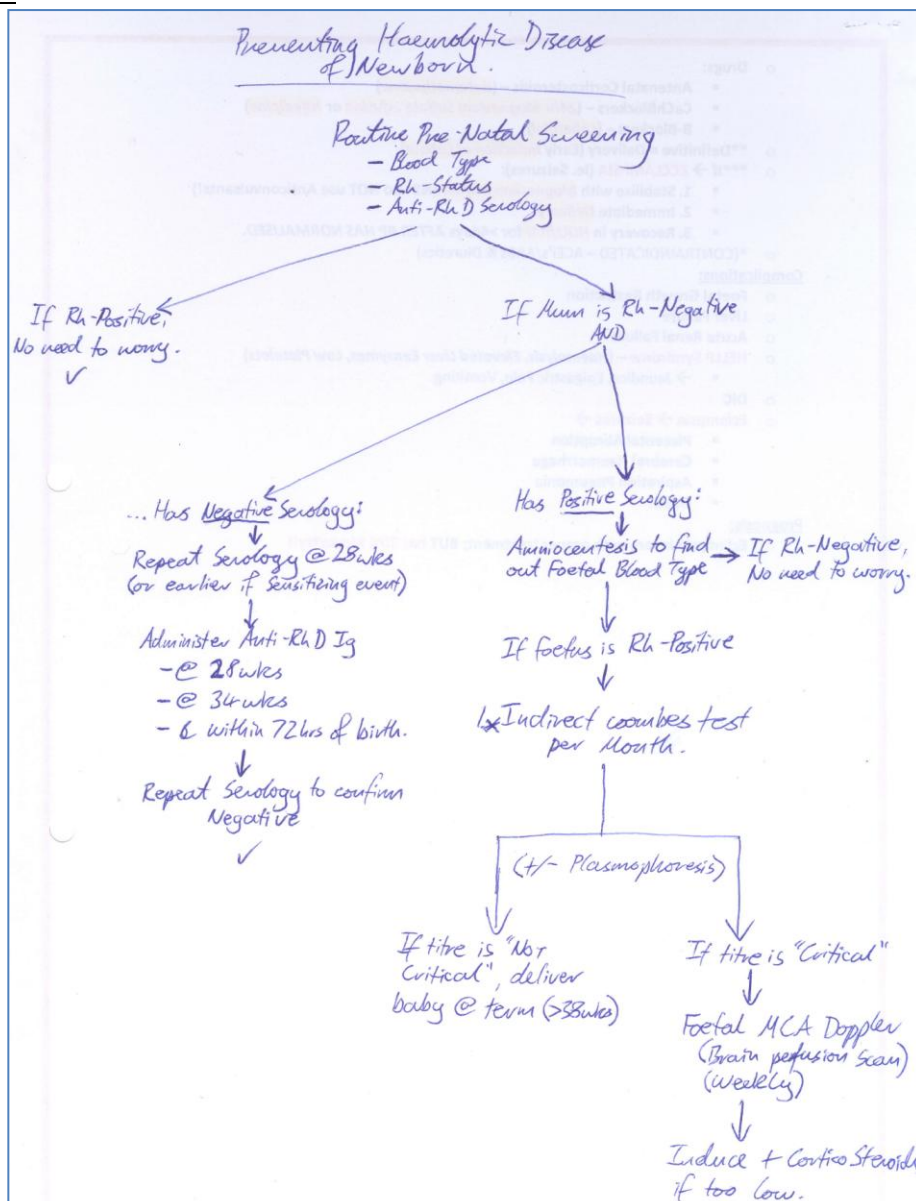 Preventing Haemolytic Disease
of Newborn.
Routine Pre-Natal Screening
- Blood Type
- Rh-Status
- Anti-RhD Serology
If Rh-Positive,
No need to worry.
✓
If Mum is Rh-Negative
AND
...Has Negative Serology:
Repeat Serology @ 28wks
(or earlier if Sensitizing event)
Administer Anti-RhD Ig
-@ 28wks
-@ 34wks
- & within 72hrs of birth.
Repeat Serology to confirm
Negative
✓
Has Positive Serology:
Amniocentesis to find
out Foetal Blood Type
If Rh-Negative,
No need to worry.
If foetus is Rh-Positive
1x Indirect coombes test
per Month.
(+/- Plasmophoresis)
If titre is "Not
Critical", deliver
baby @ term (>38wks)
If titre is "Critical"
Foetal MCA Doppler
(Brain perfusion scan)
(Weekly)
Induce + Cortico Steroids
if too low.